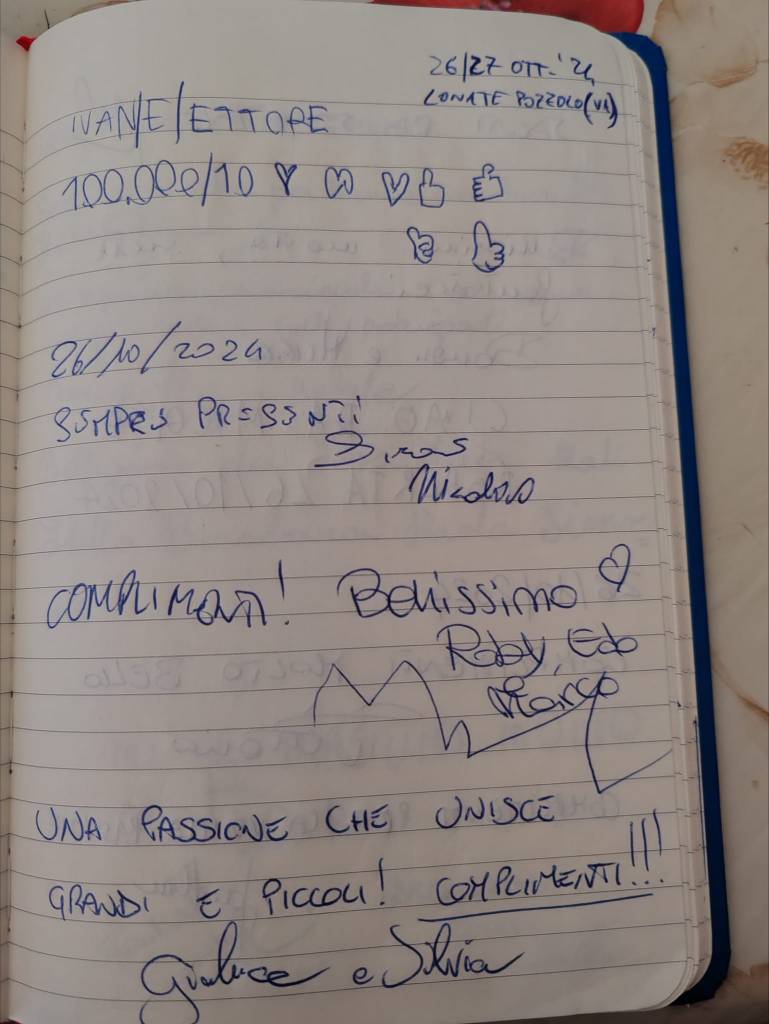 26/27 OTT. '24
LONATE POZZOLO (VA)
IVAN/E/ETTORE
100.000/10
26/10/2024
SEMPRE PRESENTI
COMPLIMENTI! Bellissimo
Roby, Edo
Marco
UNA PASSIONE CHE UNISCE
GRANDI E PICCOLI! COMPLIMENTI!!!
Gianluca e Silvia